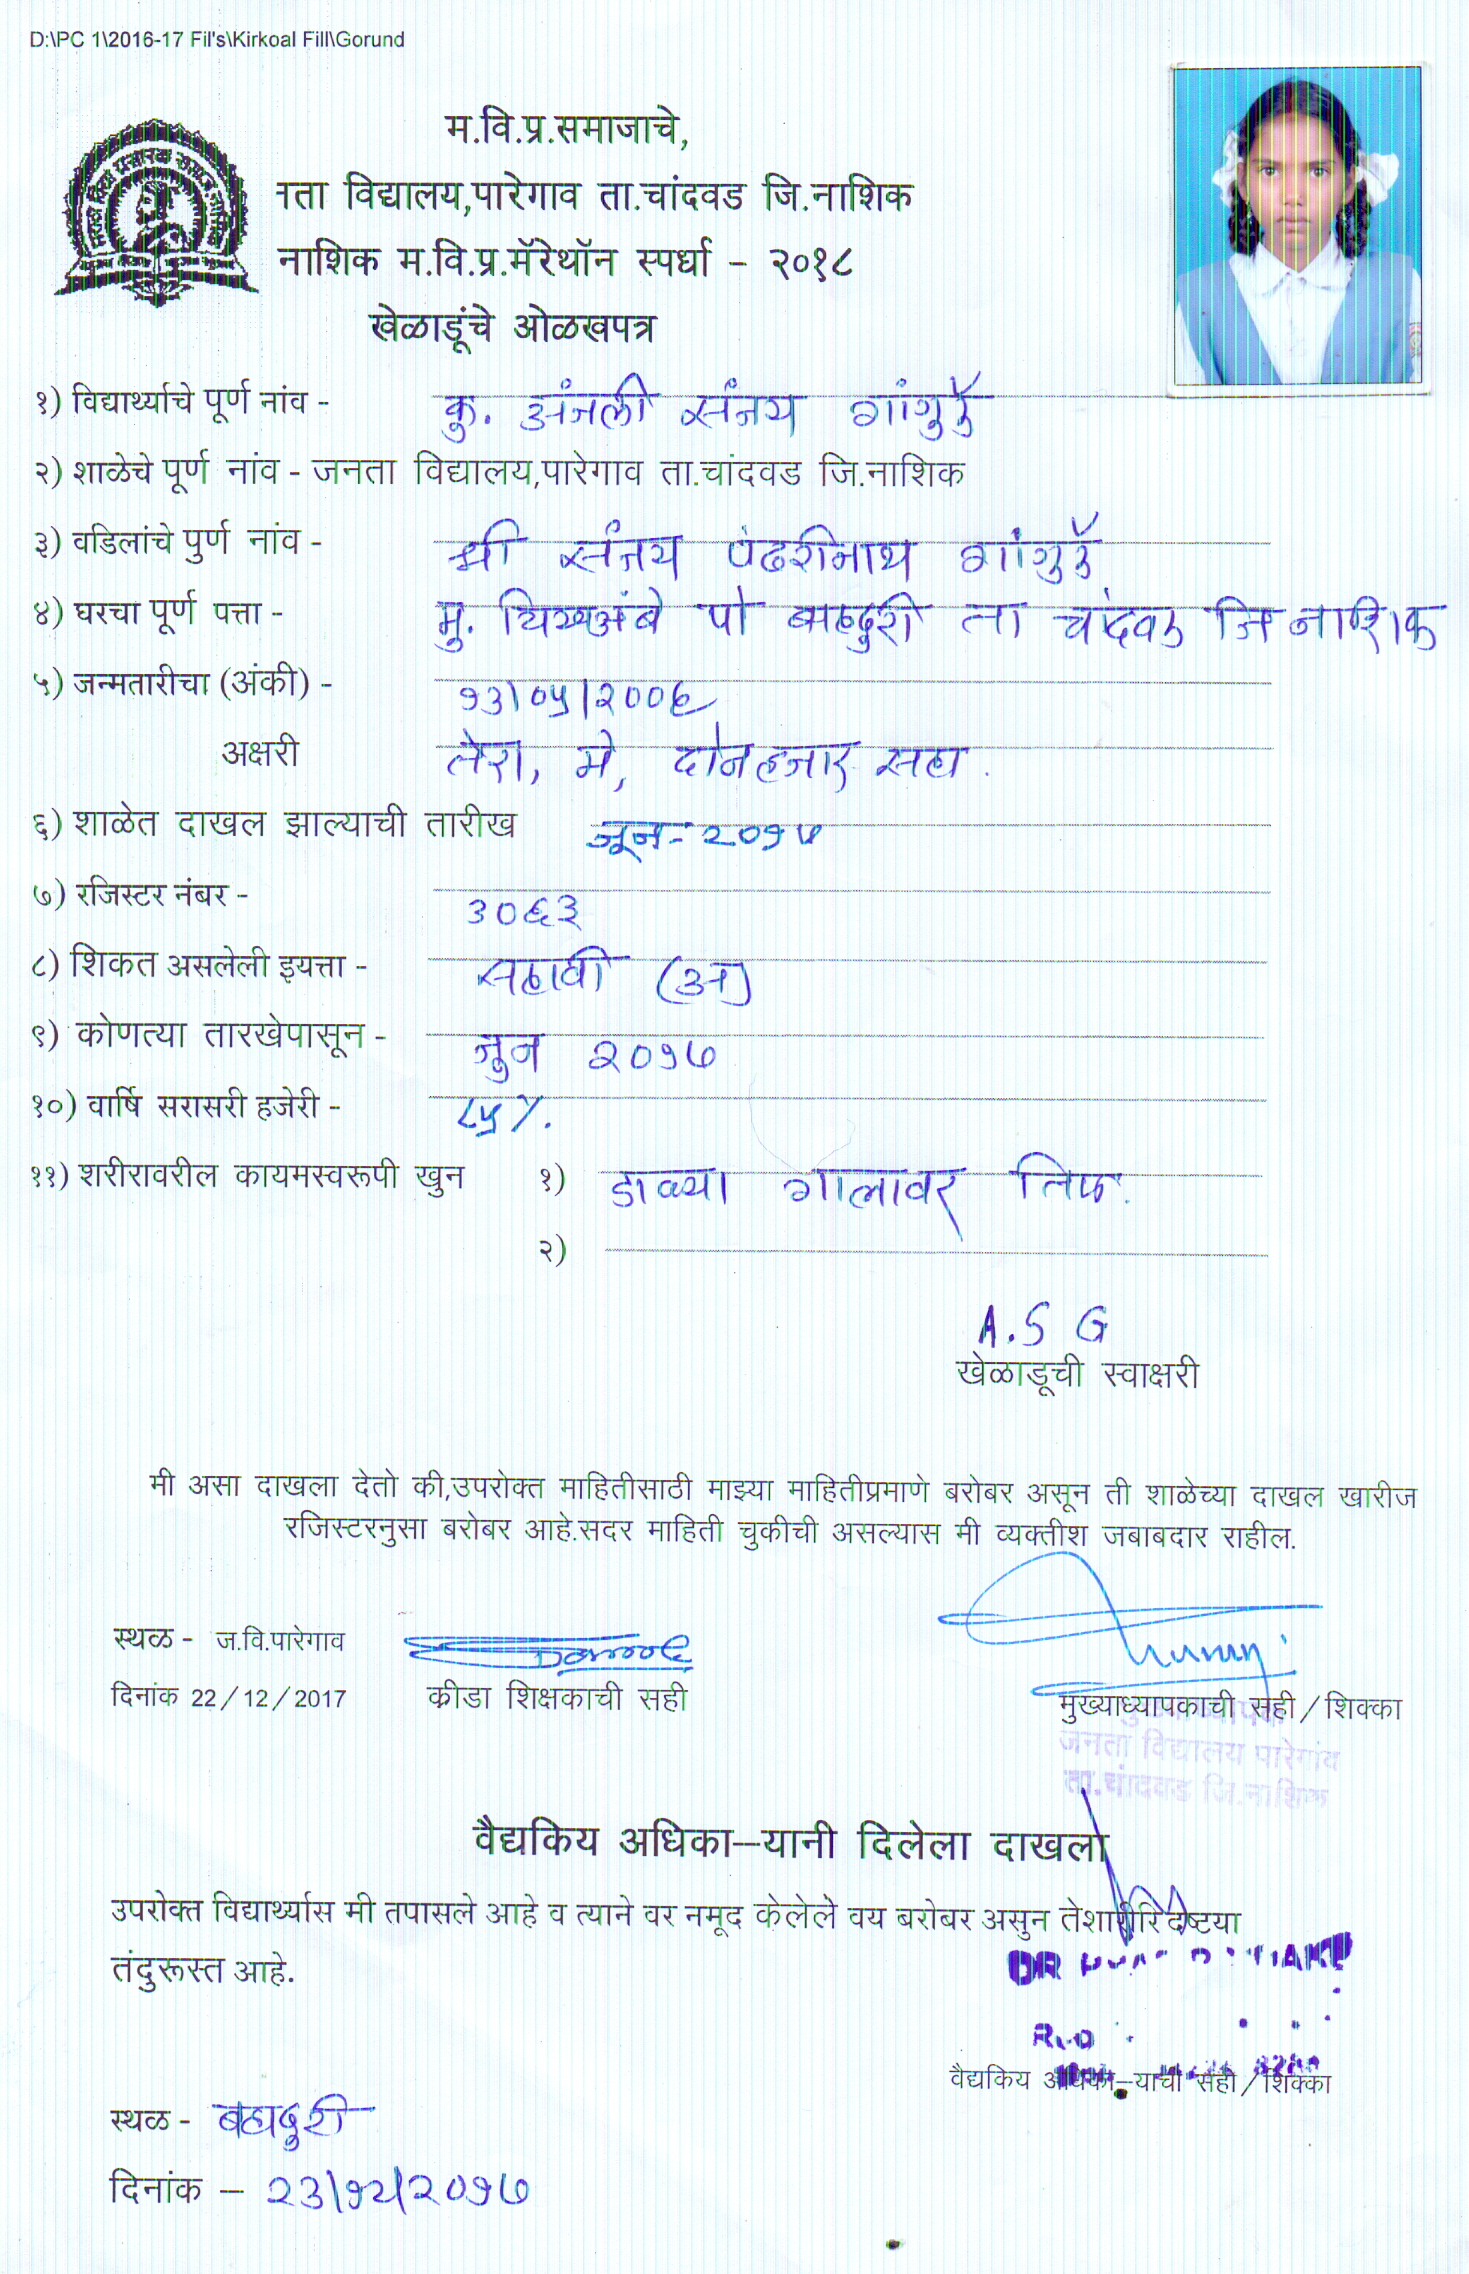 D:\PC 1\2016-17 Fil's\Kirkoal Fill\Gorund
म.वि.प्र.समाजाचे,
ाता विद्यालय,पारेगाव ता.चांदवड जि.नाशिक
नाशिक म.वि.प्र.मॅरेथॉन स्पर्धा - २०१८
खेळाडूंचे ओळखपत्र
१) विद्यार्थ्याचे पूर्ण नांव - कु. अंजली संजय गांगुर्डे
२) शाळेचे पूर्ण नांव - जनता विद्यालय,पारेगाव ता.चांदवड जि.नाशिक
३) वडिलांचे पुर्ण नांव - श्री संजय पंढरीनाथ गांगुर्डे
४) घरचा पूर्ण पत्ता - मु. चिखआंबे पो बहादुरी ता चांदवड जि नाशिक
५) जन्मतारीचा (अंकी) - १३/०५/२००६
अक्षरी तेरा, मे, दोनहजार सहा.
६) शाळेत दाखल झाल्याची तारीख जून - २०१७
७) रजिस्टर नंबर - ३०६३
८) शिकत असलेली इयत्ता - सहावी (अ)
९) कोणत्या तारखेपासून - जुन २०१७
१०) वार्षि सरासरी हजेरी - ८५%.
११) शरीरावरील कायमस्वरूपी खुन १) डाव्या गालावर तिळ.
२)
A.S G
खेळाडूची स्वाक्षरी
मी असा दाखला देतो की,उपरोक्त माहितीसाठी माझ्या माहितीप्रमाणे बरोबर असून ती शाळेच्या दाखल खारीज
रजिस्टरनुसा बरोबर आहे.सदर माहिती चुकीची असल्यास मी व्यक्तीश जबाबदार राहील.
स्थळ - ज.वि.पारेगाव
दिनांक 22/12/2017 क्रीडा शिक्षकाची सही मुख्याध्यापकाची सही/शिक्का
मुख्याध्यापक
जनता विद्यालय पारेगांव
ता.चांदवड जि.नाशिक
वैद्यकिय अधिका-यानी दिलेला दाखला
उपरोक्त विद्यार्थ्यास मी तपासले आहे व त्याने वर नमूद केलेले वय बरोबर असुन तेशारीरि दृष्टया
तंदुरूस्त आहे.
DR
वैद्यकिय अधिका-याची सही/शिक्का
स्थळ - बहादुरी
दिनांक - २३/१२/२०१७